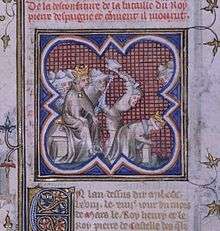 De la desconfiture de la bataille du Roy
pierre despaigne et coment il mourut.
En lan dessus dit mil ccc
le iour du mois
de Mars le Roy henry et le
Roy pierre de Castelle